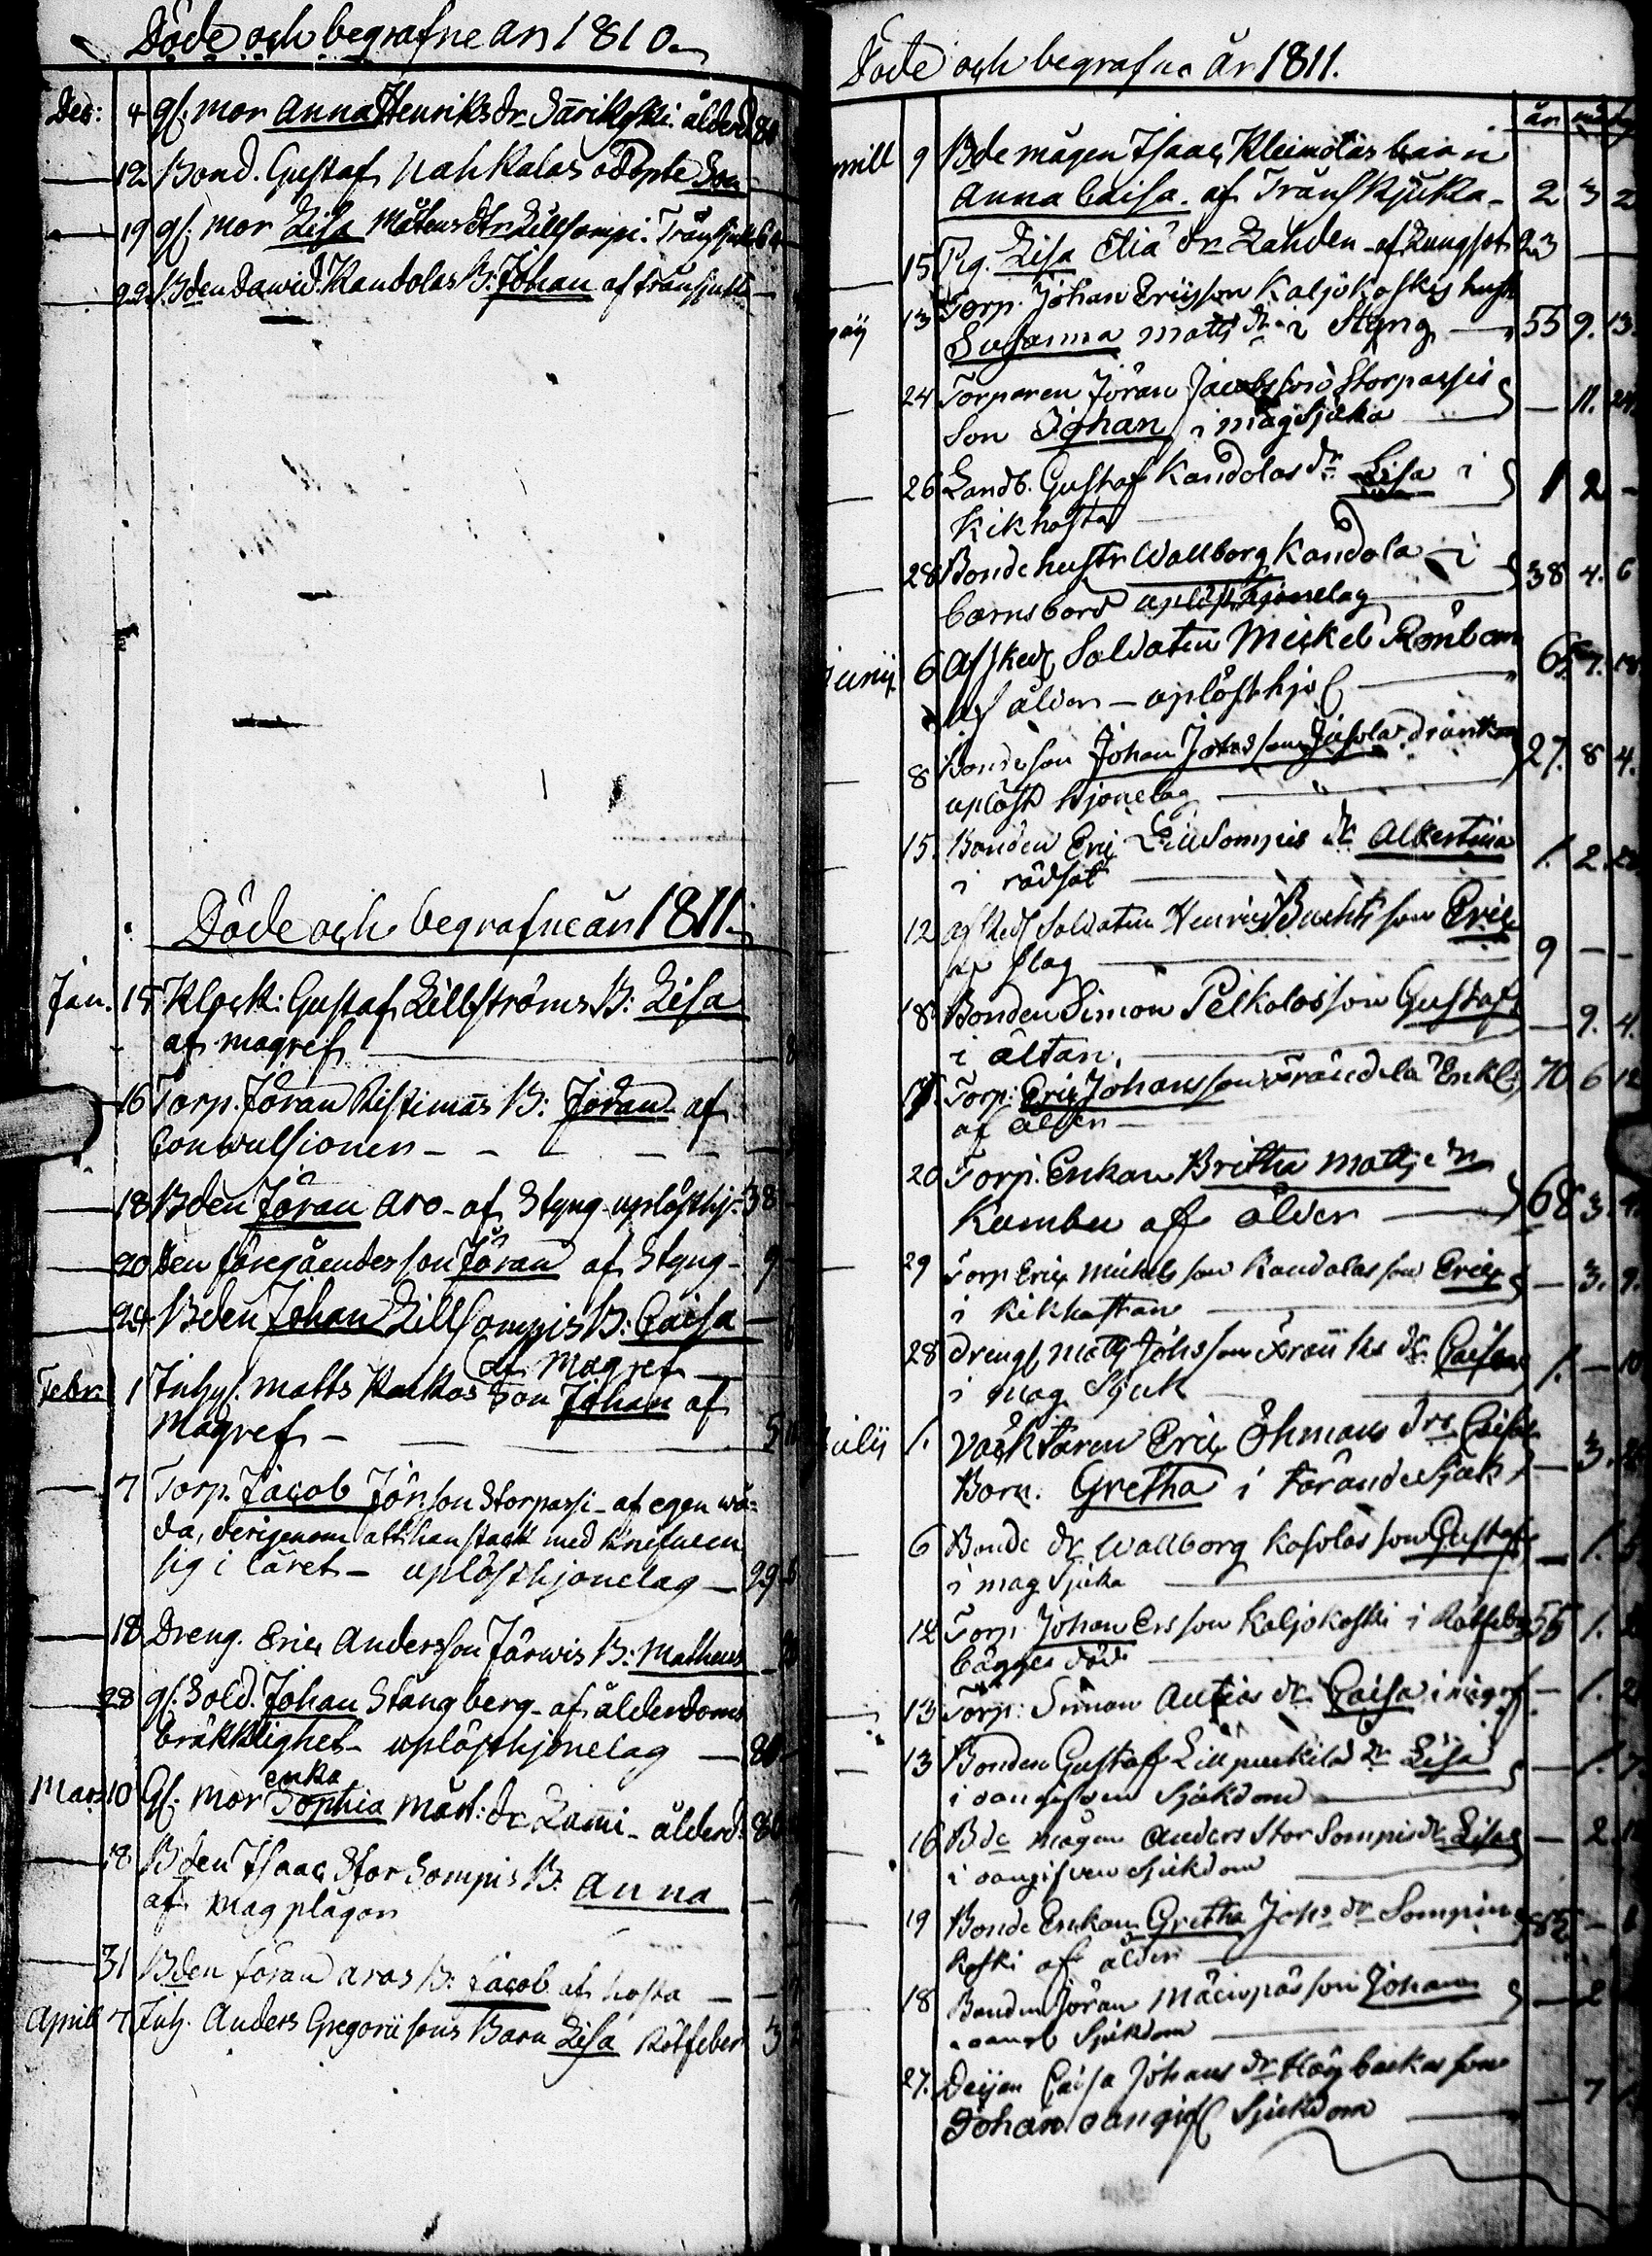 Döde och begrafne år 1810.
Dec: 4 gf. mor Anna Henriks dr ålderd 80
12 Bond. Gustaf Nahkalas odöpte Son
19 gf. mor Lisa Måtens dtr Lillsompi. Trånsjuk
29 Bden Dawid Kandolas B: Johan af trånsjuk
Döde och begrafne år 1811.
Jan. 15 Klock: Gustaf Lillströms B: Lisa
af magref
16 Torp. Jöran Ristimäs B: Jöran af
Conwulsioner
18 Bden Jöran Aro - af Styng uplöst hj. 38
20 Den föregåendes son Jöran af Styng - 9
24 Bden Johan Lillsompis B: Caisa
af Magref
Febr: 1 Inhys. Matts son Johan af
Magref -
7 Torp. Jacob Jönson Storpassi - af egen wå=
da, derigenom att han stack med knifwen
sig i låret - uplöst hjonelag - 29
18 Dreng. Eric Andersson Järwis B: Matheus
28 gf. Sold. Johan Stångberg - af ålderdoms
bräkklighet - uplöst hjonelag - 80
enka
Mars 10 Gf. Mor Sophia Mårt: dr Lami - ålderd. 80
18 Bden Isaac Storsompis B: Anna
af Mag plågor
31 Bden Jöran Aros B: Jacob af hosta
April 7 Inh. Anders Gregoriisons Barn Lisa Rötfeber 3
Döde och begrafne år 1811.
år
9 Bde mågen Isaac Kleimolas barn
Anna Caisa. af Trånsksjuka - 2 3 2
15 Pig. Lisa Elia dr Lahden - af Lungsot 23
13 Torp. Johan Ericsson Kaljokoskis hust
Susanna Matts dr i Styng 55 9. 13.
24 Torparen Jöran Jacobsson Storpassis
Son Johan i magsjuka - 11. 24
26 Landb. Gustaf Kandolas dr Lisa i
Kikhosta 1 2 -
28 Bonde hustr Wallborg Kandola i
barnsbörd uplöst hjonelag 38 4. 6
Junii 6 Afsked Soldaten Mickel Rönbom
af ålder - uplöst hjo 65 7. 18
8 Bondeson Johan Johansson dränkt
uplöst hjonelag 27. 8 4.
15. Bonden Eric Lillsompis dr Albertina
i rödsot 1. 2.
12 afsked Soldaten Henric son Eric
af slag 9 - -
18 Bonden Simon Pelkolas son Gustaf
i ältan. - 9. 4.
17. Torp: Eric Johansson Frändelä Enkl.
af ålder - 70 6 12
20 Torp. Enkan Britha Matts dr
Kambu af ålder 68 3.
29 Torp Eric Mickels son Kandolas son Eric
i kikhostan - 3. 9.
28 Dreng Matts Johsson dr Caisa
i mag Sjuk 1. - 10
Julii 1. Vacktaren Eric Öhmans dr Caisas
Barn. Gretha i tärande Sjuk - 3.
6 Bonde dr Wallborg Kasolas son Gustaf
i mag Sjuka - 1. 5
12 Torp. Johan Ersson Kaljokoski i Rötfeb 55 1.
bägges död
13 Torp: Simon dr Caisa i magref - 1. 2
13 Bonden Gustaf dr Lisa
i oangifven Sjukdom - 1. 7.
16 Bde mågen Anders Storsompis dr Lisa
i oangifven Sjukdom - 2
19 Bonde Enkan Gretha Johs dr Sompin
koski af ålder 82 -
18 Bonden Jöran son Johan
oang Sjukdom - 2
27. Caisa Johans dr son
Johan oangif Sjukdom - 7